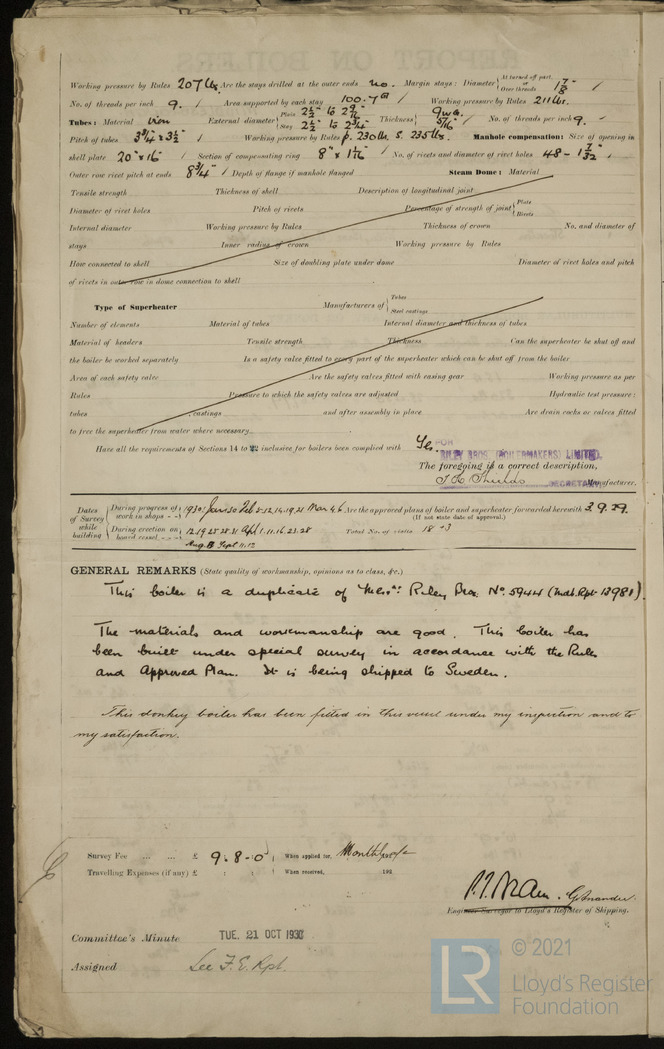 Working pressure by Rules 207 lbs. Are the stays drilled at the outer ends no. Margin stays: Diameter { At turned off part, or Over threads 1 7/8
No. of threads per inch 9. Area supported by each stay 100.7 Working pressure by Rules 211 lbs.
Tubes: Material iron External diameter { Plain 2 1/2" to 2 9/16 Stay 2 1/2" to 2 3/4 Thickness { 9 W.G. 5/16 No. of threads per inch 9.
Pitch of tubes 3 3/4 x 3 1/2 Working pressure by Rules P. 230 lb S. 235 lbs. Manhole compensation: Size of opening in
shell plate 20" x 16" Section of compensating ring 8" x 1 1/16 No. of rivets and diameter of rivet holes 48 - 1 7/32
Outer row rivet pitch at ends 8 3/4" Depth of flange if manhole flanged Steam Dome: Material
Tensile strength Thickness of shell Description of longitudinal joint
Diameter of rivet holes Pitch of rivets Percentage of strength of joint { Plate Rivets
Internal diameter Working pressure by Rules Thickness of crown No. and diameter of
stays Inner radius of crown Working pressure by Rules
How connected to shell Size of doubling plate under dome Diameter of rivet holes and pitch
of rivets in outer row in dome connection to shell
Type of Superheater Manufacturers of { Tubes Steel castings
Number of elements Material of tubes Internal diameter and thickness of tubes
Material of headers Tensile strength Thickness Can the superheater be shut off and
the boiler be worked separately Is a safety valve fitted to every part of the superheater which can be shut off from the boiler
Area of each safety valve Are the safety valves fitted with easing gear Working pressure as per
Rules Pressure to which the safety valves are adjusted Hydraulic test pressure:
tubes castings and after assembly in place Are drain cocks or valves fitted
to free the superheater from water where necessary
Have all the requirements of Sections 14 to 22 inclusive for boilers been complied with Yes.
FOR
RILEY BROS. (BOILERMAKERS) LIMITED.
The foregoing is a correct description,
Shields SECRETARY Manufacturer.
Dates of Survey while building { During progress of work in shops 1930: Jan 30 Feb 5.12.14.19.21 Mar 4.6 Are the approved plans of boiler and superheater forwarded herewith 3.9.29.
(If not state date of approval.)
During erection on board vessel 12.19.25.28.31 Apl 1.11.16.23.28 Total No. of visits 18 + 3
Aug. Sept 11.12
GENERAL REMARKS (State quality of workmanship, opinions as to class, &c.)
This boiler is a duplicate of Messrs: Riley Bros No. 5944 (Mdb. Rpt. 13981).
The materials and workmanship are good. This boiler has
been built under special survey in accordance with the Rules
and Approved Plan. It is being shipped to Sweden.
This donkey boiler has been fitted in this vessel under my inspection and to
my satisfaction.
Survey Fee ... ... £ 9 : 8 - 0 : When applied for, Monthly
Travelling Expenses (if any) £ : : When received, 192
Engineer Surveyor to Lloyd's Register of Shipping.
Committee's Minute TUE. 21 OCT 1930
Assigned See F.E. Rpt.
LR
© 2021
Lloyd's Register
Foundation